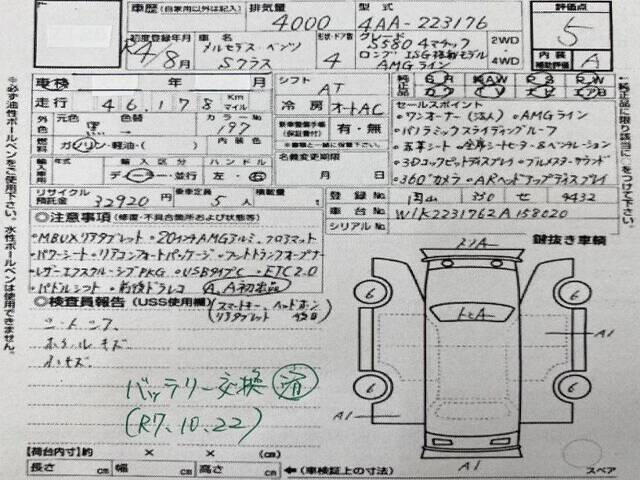 車歴 (自家用以外は記入) 排気量 4000 型式 4AA-223176 評価点 5
初度登録年月 R4/8月 車名 メルセデス・ベンツ Sクラス 形状・ドア数 4 グレード S580 4マチック ロング ISG搭載モデル AMGライン 2WD 4WD
内装補助評価 A
車検 年 月 シフト AT 純正品 SR 純AW PS PW
走行 46,178 Km マイル 冷房 オートAC カワ TV ナビ エアB
外色 元色 黒 色替 カラーNo. 197
燃料 ガソリン・軽油・( ) 内装色
新車整備手帳(保証書付) 有・無
輸入車用 年式 輸入区分 ディーラー・並行 ハンドル 左・右
名義変更期限 月 日
リサイクル預託金 32920円 乗車定員 5人 積載量 t
セールスポイント
・ワンオーナー(法人) ・AMGライン
・パノラミックスライディングルーフ
・本革シート ・全席シートヒーター&ベンチレーション
・3Dコックピットディスプレイ ・ブルメスターサウンド
・360°カメラ ・ARヘッドアップディスプレイ
登録No. 円山 330 せ 9432
車台No. W1K2231762A158020
シリアルNo.
◎注意事項 (修復・不具合箇所および状態等)
・MBUXリアタブレット ・20インチAMGアルミ、フロアマット
・パワーシート ・リアコンフォートパッケージ ・フットトランクオープナー
・レザーエクスクルーシブPKG ・USBタイプC ・ETC2.0
・パドルシフト ・前後ドラレコ A.A初出品
◎検査員報告 (USS使用欄) (スマートキー、ヘッドホン リアタブレット
シートシワ
ホイルキズ
小キズ
バッテリー交換 済
(R7.10.22)
鍵抜き車輌
トソA
トヒA
6
6
6
6
A1
A1
A1
スペア
【荷台内寸】約 × × (cm)
長さ cm 幅 cm 高さ cm ←(車検証上の寸法)
※必ず油性ボールペンをご使用下さい。水性ボールペンは使用できません。